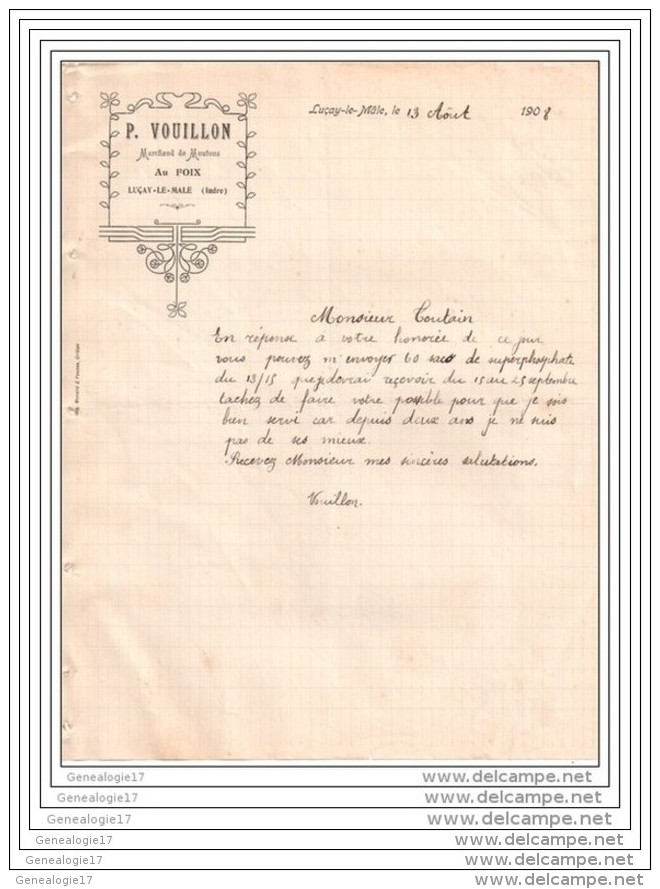 P. VOUILLON
Marchand de Moutons
Au FOIX
LUÇAY-LE-MALE (Indre)
Luçay-le-Mâle, le 13 Août 1908
Monsieur Toutain
En réponse a votre honorée de ce jour
vous pouvez m'envoyer 60 sacs de superphosphate
du 13/15 recevoir du 15 au 25 septembre
tachez de faire votre possible pour que je sois
bien servi car depuis deux ans je ne suis
pas de ses mieux.
Recevez Monsieur mes sincères salutations.
Vouillon.
Genealogie17 www.delcampe.net
Genealogie17 www.delcampe.net
Genealogie17 www.delcampe.net
Genealogie17 www.delcampe.net
Genealogie17 www.delcampe.net
Genealogie17 www.delcampe.net